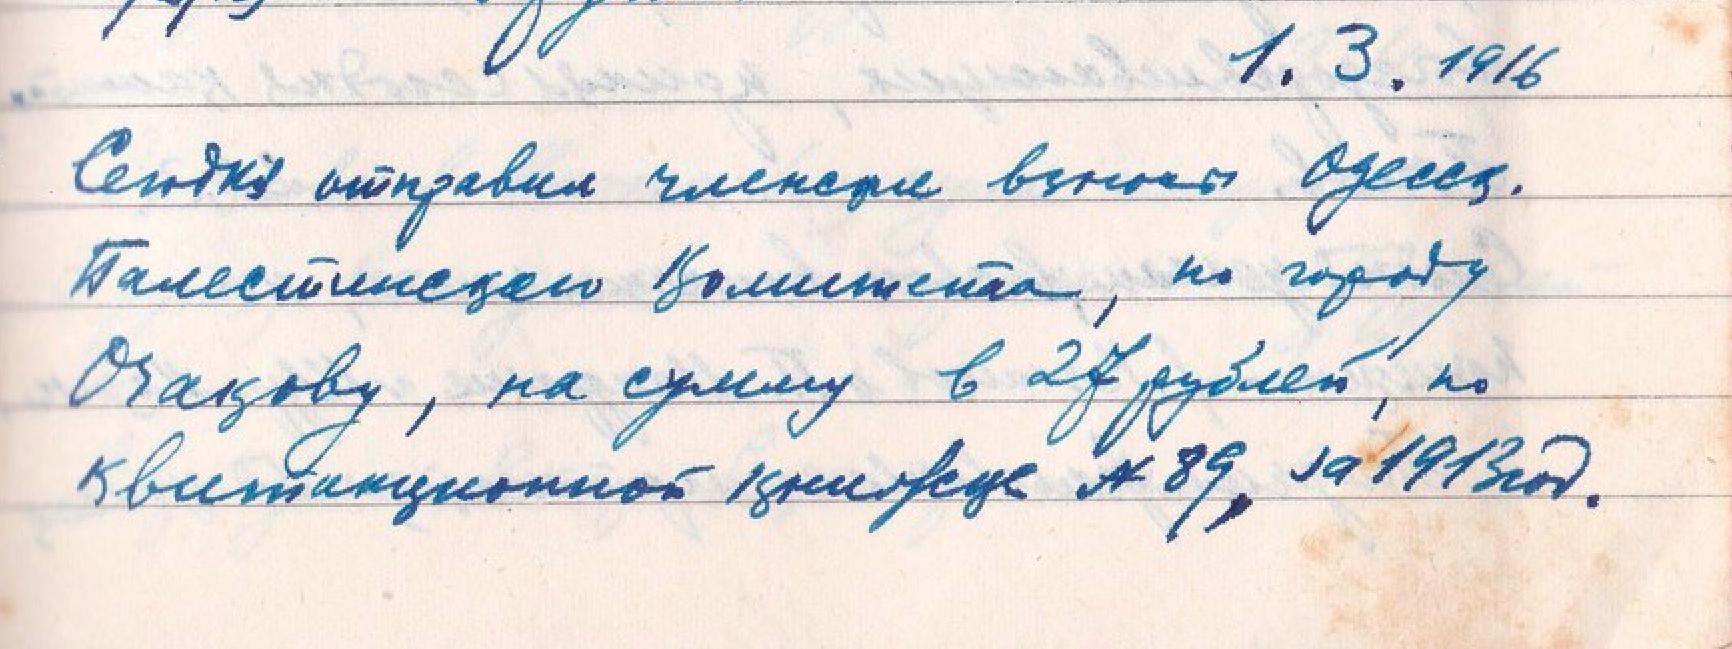 1. 3. 1916
Сегодня отправил членские взносы Одесск.
Палестинского Комитета, по городу
Очакову, на сумму в 27 рублей, по
квитанционной книжке № 89, за 1913 год.